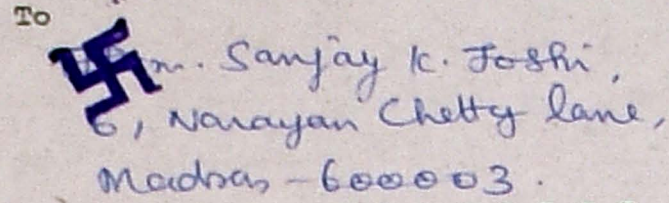 To
Sanjay K. Joshi,
6, Narayan Chetty lane,
Madras - 600003.